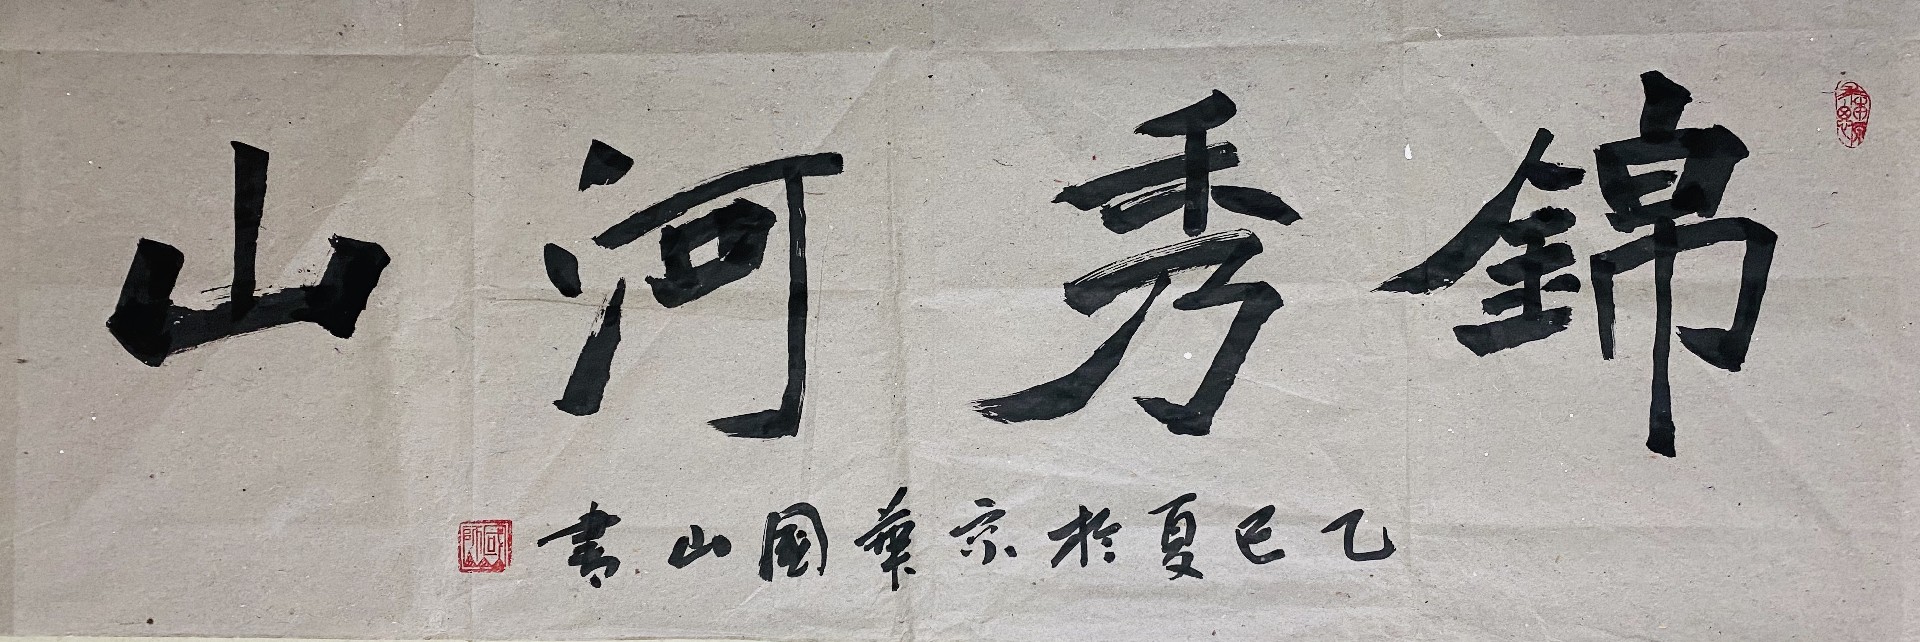 錦秀河山
乙巳夏於京華國山書